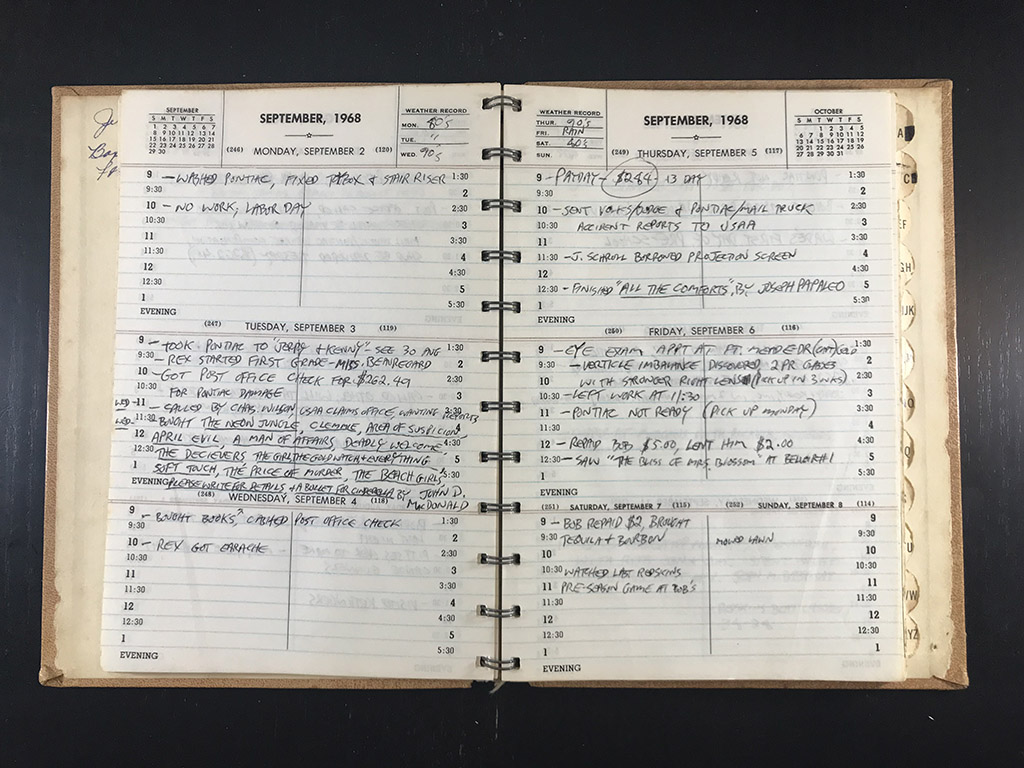 SEPTEMBER
S M T W T F S
1 2 3 4 5 6 7
8 9 10 11 12 13 14
15 16 17 18 19 20 21
22 23 24 25 26 27 28
29 30
SEPTEMBER, 1968
(246) MONDAY, SEPTEMBER 2 (120)
WEATHER RECORD
MON. 80's
TUE. "
WED. 90's
9 - WASHED PONTIAC, FIXED & STAIR RISER 1:30
9:30 2
10 - NO WORK, LABOR DAY 2:30
10:30 3
11 3:30
11:30 4
12 4:30
12:30 5
1 5:30
EVENING
(247) TUESDAY, SEPTEMBER 3 (119)
9 - TOOK PONTIAC TO "JERRY & KENNY" - SEE 30 AUG 1:30
9:30 - REX STARTED FIRST GRADE - MISS. BEAUREGARD 2
10 - GOT POST OFFICE CHECK FOR $262.49 2:30
10:30 FOR PONTIAC DAMAGE 3
WED -11 - CALLED BY CHAS. WILSON, USAA CLAIMS OFFICE, WANTING REPORTS 3:30
WED- 11:30 BOUGHT THE NEON JUNGLE, CLEMMIE, AREA OF SUSPICION 4
12 APRIL EVIL A MAN OF AFFAIRS DEADLY WELCOME, 4:30
12:30 THE DECIEVERS THE GIRL, THE GOLD WATCH & EVERYTHING 5
1 SOFT TOUCH, THE PRICE OF MURDER, THE BEACH GIRLS 5:30
EVENING PLEASE WRITE FOR DETAILS & A BULLET FOR CINDERELLA BY JOHN D. MACDONALD
(248) WEDNESDAY, SEPTEMBER 4 (118)
9 - BOUGHT BOOKS, CASHED POST OFFICE CHECK 1:30
9:30 2
10 - REX GOT EARACHE 2:30
10:30 3
11 3:30
11:30 4
12 4:30
12:30 5
1 5:30
EVENING
WEATHER RECORD
THUR. 90's
FRI. RAIN
SAT. 80's
SUN.
SEPTEMBER, 1968
(249) THURSDAY, SEPTEMBER 5 (117)
OCTOBER
S M T W T F S
1 2 3 4 5
6 7 8 9 10 11 12
13 14 15 16 17 18 19
20 21 22 23 24 25 26
27 28 29 30 31
9 - PAYDAY - $284 13 DAY 1:30
9:30 2
10 - SENT VOLKS/DODGE & PONTIAC/MAIL TRUCK 2:30
10:30 ACCIDENT REPORTS TO USAA 3
11 3:30
11:30 - J. SCHROLL BORROWED PROJECTION SCREEN 4
12 4:30
12:30 - FINISHED "ALL THE COMFORTS", BY JOSEPH PAPALEO 5
1 5:30
EVENING
(250) FRIDAY, SEPTEMBER 6 (116)
9 - EYE EXAM APPT AT FT. MEADE DR (CPT) 1:30
9:30 - VERTICLE IMBALANCE DISCOVERED 2 PR GLASSES 2
10 WITH STRONGER RIGHT LENS (PICK UP IN 3 WKS) 2:30
10:30 - LEFT WORK AT 11:30 3
11 - PONTIAC NOT READY (PICK UP MONDAY) 3:30
11:30 4
12 - REPAID BOB $5.00, LENT HIM $2.00 4:30
12:30 - SAW "THE BLISS OF MRS. BLOSSOM" AT 5
1 5:30
EVENING
(251) SATURDAY, SEPTEMBER 7 (115)
(252) SUNDAY, SEPTEMBER 8 (114)
9 - BOB REPAID $2, BROUGHT 9
9:30 TEQUILA & BOURBON MOWED LAWN 9:30
10 10
10:30 WATCHED LAST REDSKINS 10:30
11 PRE-SEASON GAME AT BOB'S 11
11:30 11:30
12 12
12:30 12:30
1 1
EVENING
A
C
EF
GH
IJK